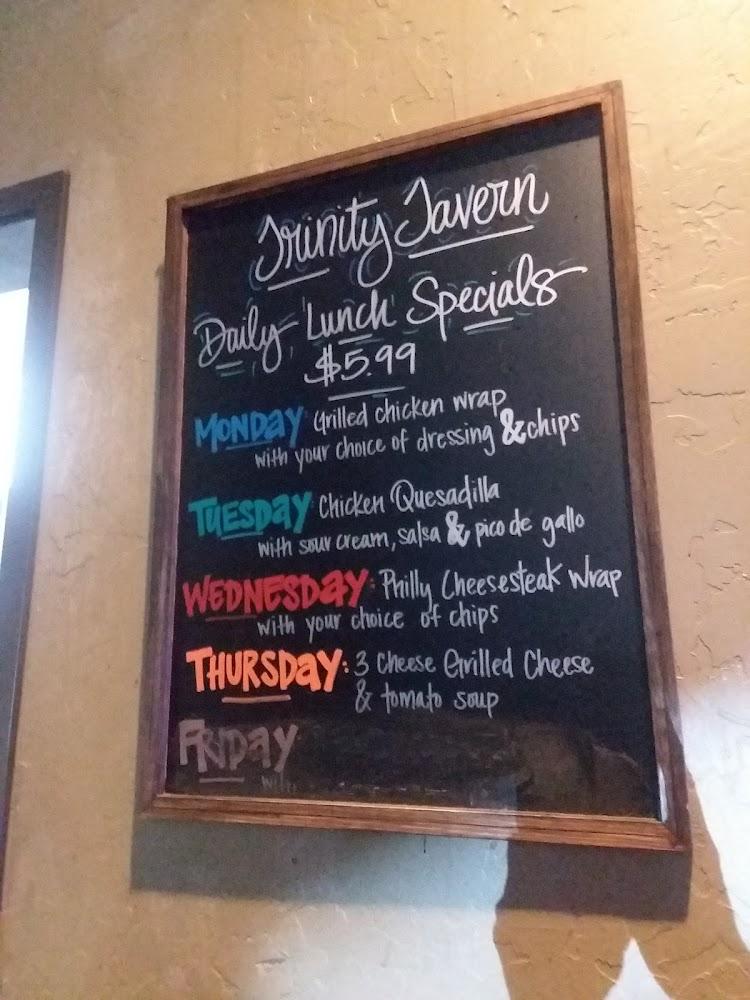 Trinity Tavern
Daily Lunch Specials
$5.99
MONDAY: Grilled chicken wrap
with your choice of dressing & chips
TUESDAY: Chicken Quesadilla
with sour cream, salsa & pico de gallo
WEDNESDAY: Philly Cheesesteak Wrap
with your choice of chips
THURSDAY: 3 Cheese Grilled Cheese
& tomato soup
FRIDAY
with